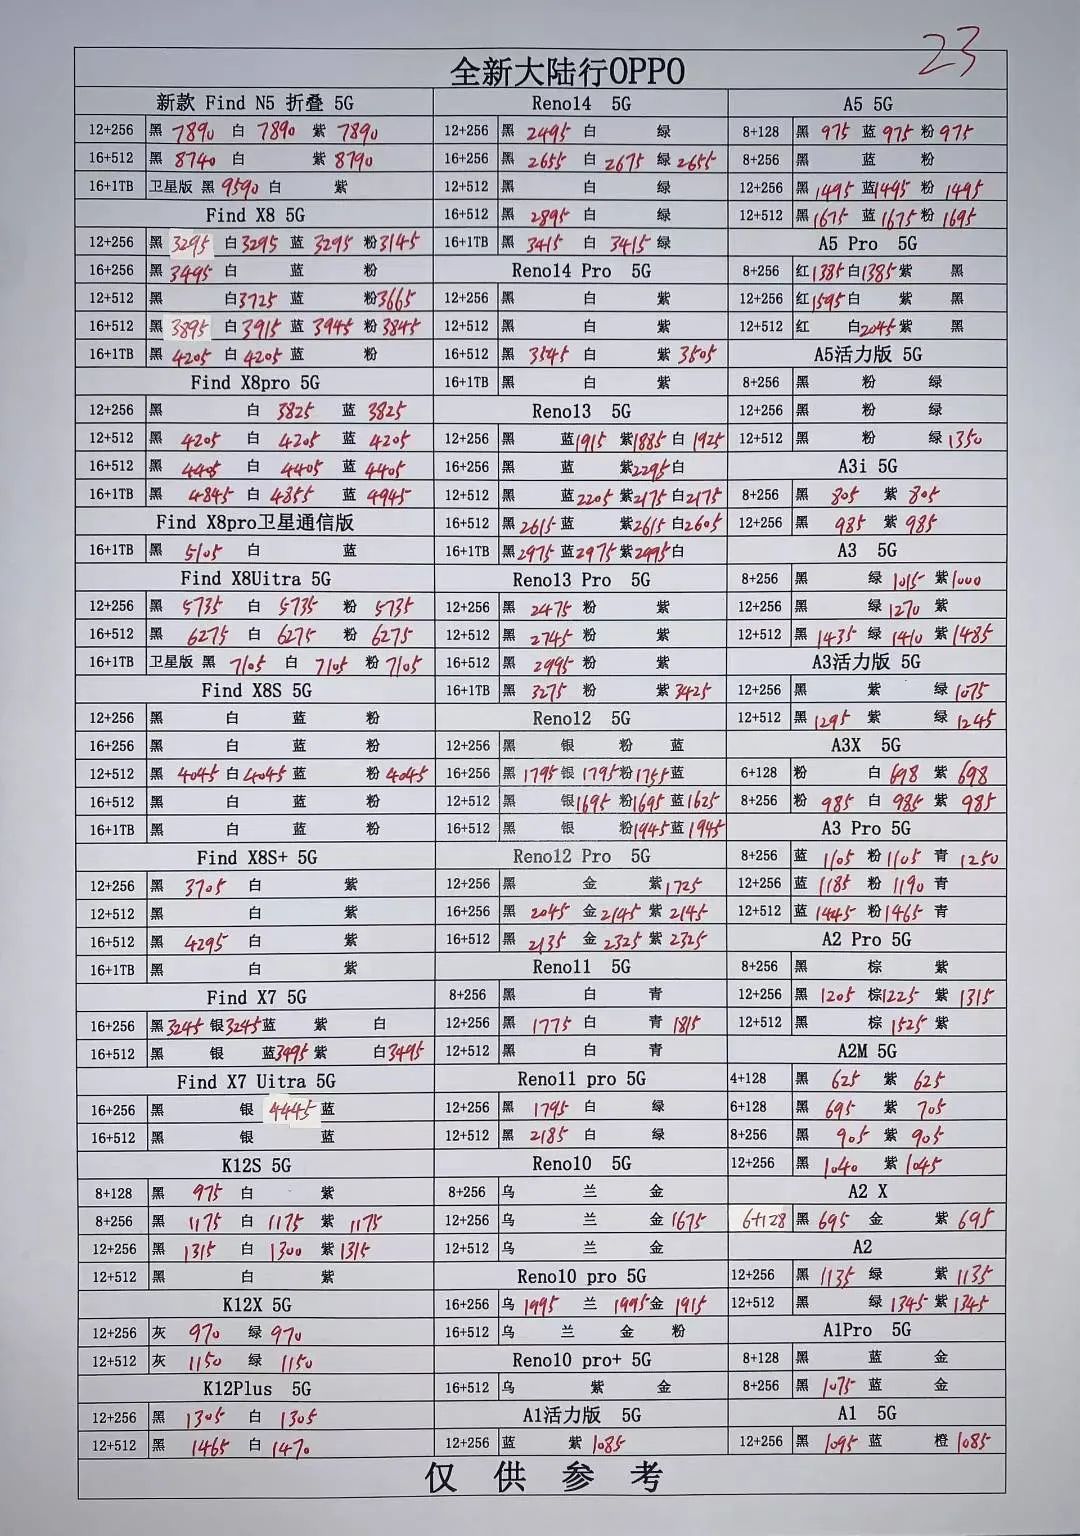 23
全新大陆行OPPO
新款 Find N5 折叠 5G
12+256 黑 7890 白 7890 紫 7890
16+512 黑 8740 白 紫 8790
16+1TB 卫星版 黑 9590 白 紫
Find X8 5G
12+256 黑 3295 白 3295 蓝 3295 粉 3145
16+256 黑 3495 白 蓝 粉
12+512 黑 白 3725 蓝 粉 3665
16+512 黑 3895 白 3915 蓝 3945 粉 3845
16+1TB 黑 4205 白 4205 蓝 粉
Find X8pro 5G
12+256 黑 白 3825 蓝 3825
12+512 黑 4205 白 4205 蓝 4205
16+256 黑 4405 白 4405 蓝 4405
16+1TB 黑 4845 白 4855 蓝 4945
Find X8pro卫星通信版
16+1TB 黑 5105 白 蓝
Find X8Uitra 5G
12+256 黑 5735 白 5735 粉 5735
16+512 黑 6275 白 6275 粉 6275
16+1TB 卫星版 黑 7105 白 7105 粉 7105
Find X8S 5G
12+256 黑 白 蓝 粉
16+256 黑 白 蓝 粉
12+512 黑 4045 白 4045 蓝 粉 4045
16+512 黑 白 蓝 粉
16+1TB 黑 白 蓝 粉
Find X8S+ 5G
12+256 黑 3705 白 紫
12+512 黑 白 紫
16+512 黑 4295 白 紫
16+1TB 黑 白 紫
Find X7 5G
16+256 黑 3245 银 3245 蓝 紫 白
16+512 黑 银 蓝 3495 紫 白 3495
Find X7 Uitra 5G
16+256 黑 银 4445 蓝
16+512 黑 银 蓝
K12S 5G
8+128 黑 975 白 紫
8+256 黑 1175 白 1175 紫 1175
12+256 黑 1315 白 1300 紫 1315
12+512 黑 白 紫
K12X 5G
12+256 灰 970 绿 970
12+512 灰 1150 绿 1150
K12Plus 5G
12+256 黑 1305 白 1305
12+512 黑 1465 白 1470
Reno14 5G
12+256 黑 2495 白 绿
16+256 黑 2655 白 2675 绿 2655
12+512 黑 白 绿
16+512 黑 2895 白 绿
16+1TB 黑 3415 白 3415 绿
Reno14 Pro 5G
12+256 黑 白 紫
12+512 黑 白 紫
16+512 黑 3545 白 紫 3505
16+1TB 黑 白 紫
Reno13 5G
12+256 黑 蓝 1915 紫 1885 白 1925
16+256 黑 蓝 紫 2295 白
12+512 黑 蓝 2205 紫 2175 白 2175
16+512 黑 2615 蓝 紫 2615 白 2605
16+1TB 黑 2975 蓝 2975 紫 2995 白
Reno13 Pro 5G
12+256 黑 2475 粉 紫
12+512 黑 2745 粉 紫
16+512 黑 2995 粉 紫
16+1TB 黑 3275 粉 紫 3425
Reno12 5G
12+256 黑 银 粉 蓝
16+256 黑 1795 银 1795 粉 1755 蓝
12+512 黑 银 1695 粉 1695 蓝 1625
16+512 黑 银 粉 1945 蓝 1945
Reno12 Pro 5G
12+256 黑 金 紫 1725
16+256 黑 2045 金 2145 紫 2145
16+512 黑 2135 金 2325 紫 2325
Reno11 5G
8+256 黑 白 青
12+256 黑 1775 白 青 1815
12+512 黑 白 青
Reno11 pro 5G
12+256 黑 1795 白 绿
12+512 黑 2185 白 绿
Reno10 5G
8+256 乌 兰 金
12+256 乌 兰 金 1675
12+512 乌 兰 金
Reno10 pro 5G
16+256 乌 1995 兰 1995 金 1915
16+512 乌 兰 金 粉
Reno10 pro+ 5G
16+512 乌 紫 金
A1活力版 5G
12+256 蓝 紫 1085
A5 5G
8+128 黑 975 蓝 975 粉 975
8+256 黑 蓝 粉
12+256 黑 1495 蓝 1495 粉 1495
12+512 黑 1675 蓝 1675 粉 1695
A5 Pro 5G
8+256 红 1385 白 1385 紫 黑
12+256 红 1595 白 紫 黑
12+512 红 白 2045 紫 黑
A5活力版 5G
8+256 黑 粉 绿
12+256 黑 粉 绿
12+512 黑 粉 绿 1350
A3i 5G
8+256 黑 805 紫 805
12+256 黑 985 紫 985
A3 5G
8+256 黑 绿 1015 紫 1000
12+256 黑 绿 1270 紫
12+512 黑 1435 绿 1410 紫 1485
A3活力版 5G
12+256 黑 紫 绿 1075
12+512 黑 1295 紫 绿 1245
A3X 5G
6+128 粉 白 698 紫 698
8+256 粉 985 白 985 紫 985
A3 Pro 5G
8+256 蓝 1105 粉 1105 青 1250
12+256 蓝 1185 粉 1190 青
12+512 蓝 1445 粉 1465 青
A2 Pro 5G
8+256 黑 棕 紫
12+256 黑 1205 棕 1225 紫 1315
12+512 黑 棕 1525 紫
A2M 5G
4+128 黑 625 紫 625
6+128 黑 695 紫 705
8+256 黑 905 紫 905
12+256 黑 1040 紫 1045
A2 X
6+128 黑 695 金 紫 695
A2
12+256 黑 1135 绿 紫 1135
12+512 黑 绿 1345 紫 1345
A1Pro 5G
8+128 黑 蓝 金
8+256 黑 1075 蓝 金
A1 5G
12+256 黑 1095 蓝 橙 1085
仅供参考